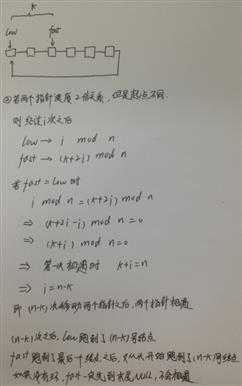 k
low
fast
②若两个指针速度2倍关系，但是起点不同.
则经过i次之后
low → i mod n
fast → (k+2i) mod n
若 fast = low 时
i mod n = (k+2i) mod n
⇒ (k+2i-i) mod n = 0
⇒ (k+i) mod n = 0
⇒ 第一次相遇时 k+i=n
⇒ i=n-k
即 (n-k) 次移动两个指针之后，两个指针相遇
(n-k)次之后，low 跑到了(n-k)号结点
fast 跑到了最后一个结点之后，又从头开始跑到了(n-k)号结点
如果没有环，fast 一定先到末尾NULL，不会相遇